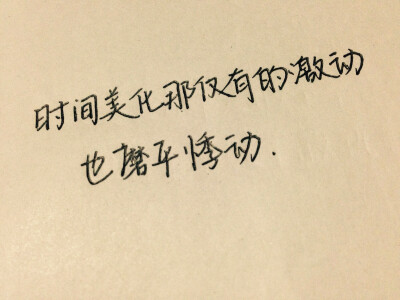 时间美化那仅有的激动
也磨平悸动.